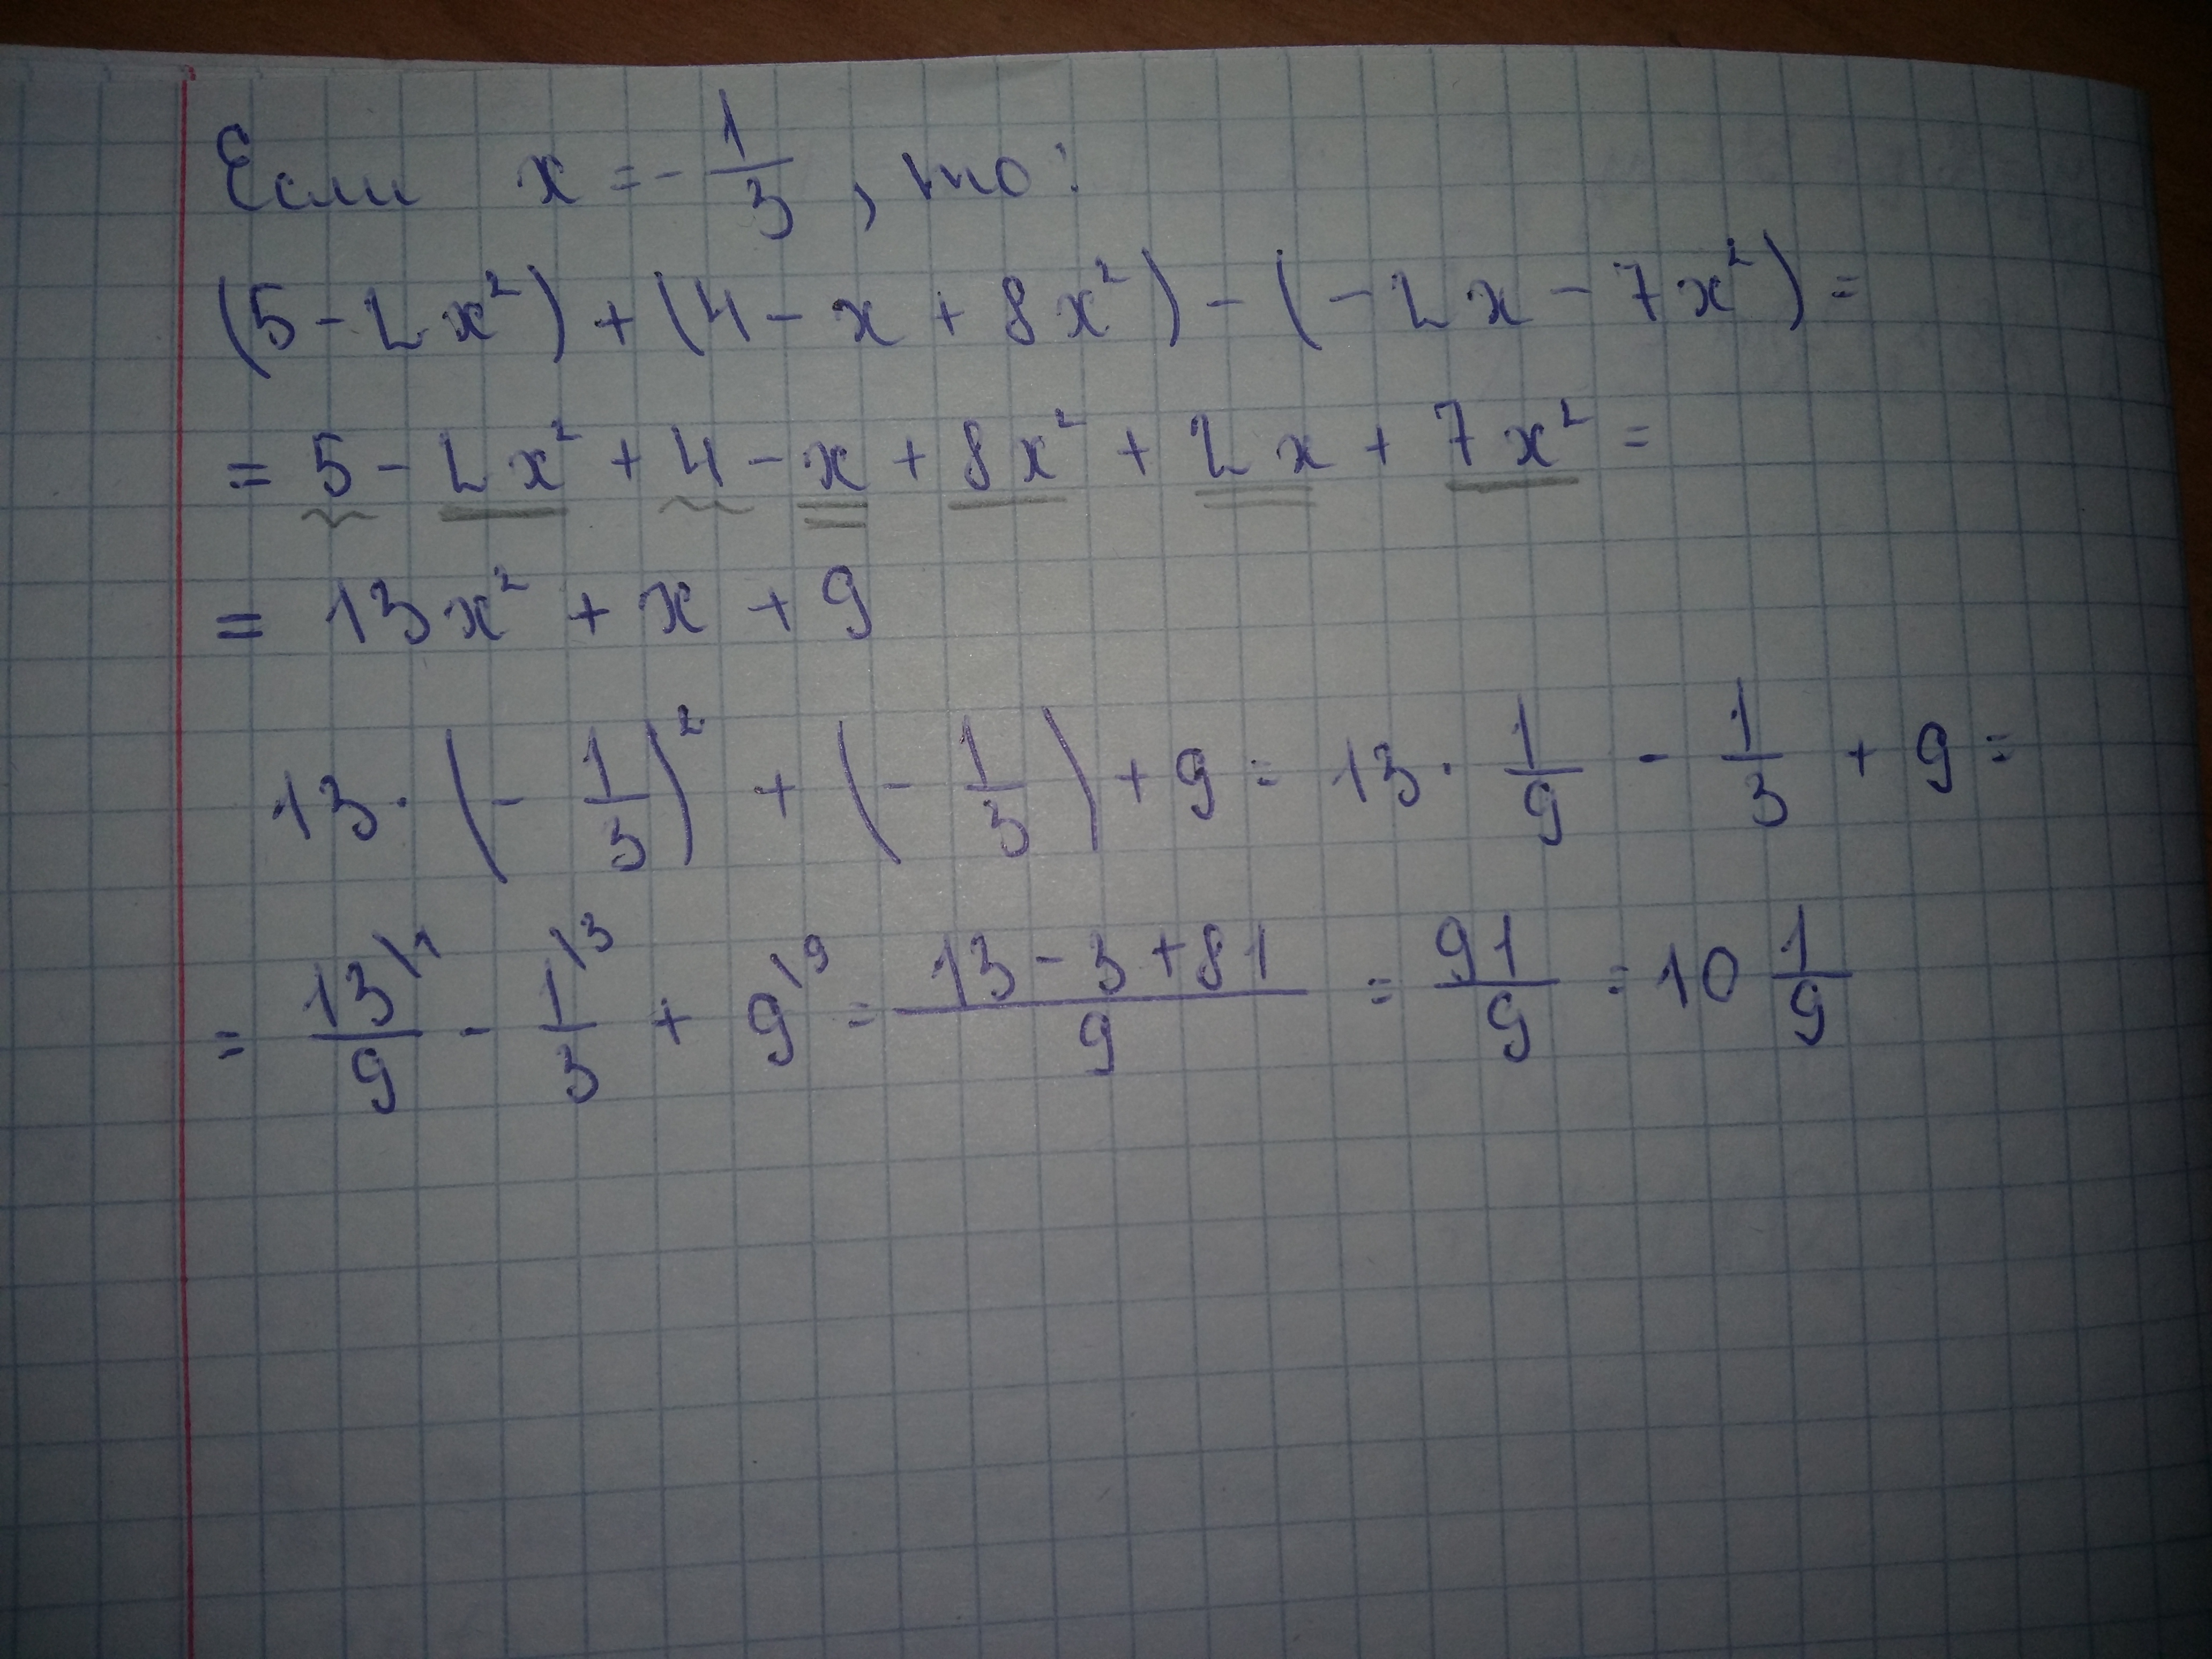 Если x = - 1/3, то:
(5 - 2x²) + (4 - x + 8x²) - (- 2x - 7x²) =
= 5 - 2x² + 4 - x + 8x² + 2x + 7x² =
= 13x² + x + 9
13 · (- 1/3)² + (- 1/3) + 9 = 13 · 1/9 - 1/3 + 9 =
= 13\1/9 - 1\3/3 + 9\9 = (13 - 3 + 81)/9 = 91/9 = 10 1/9